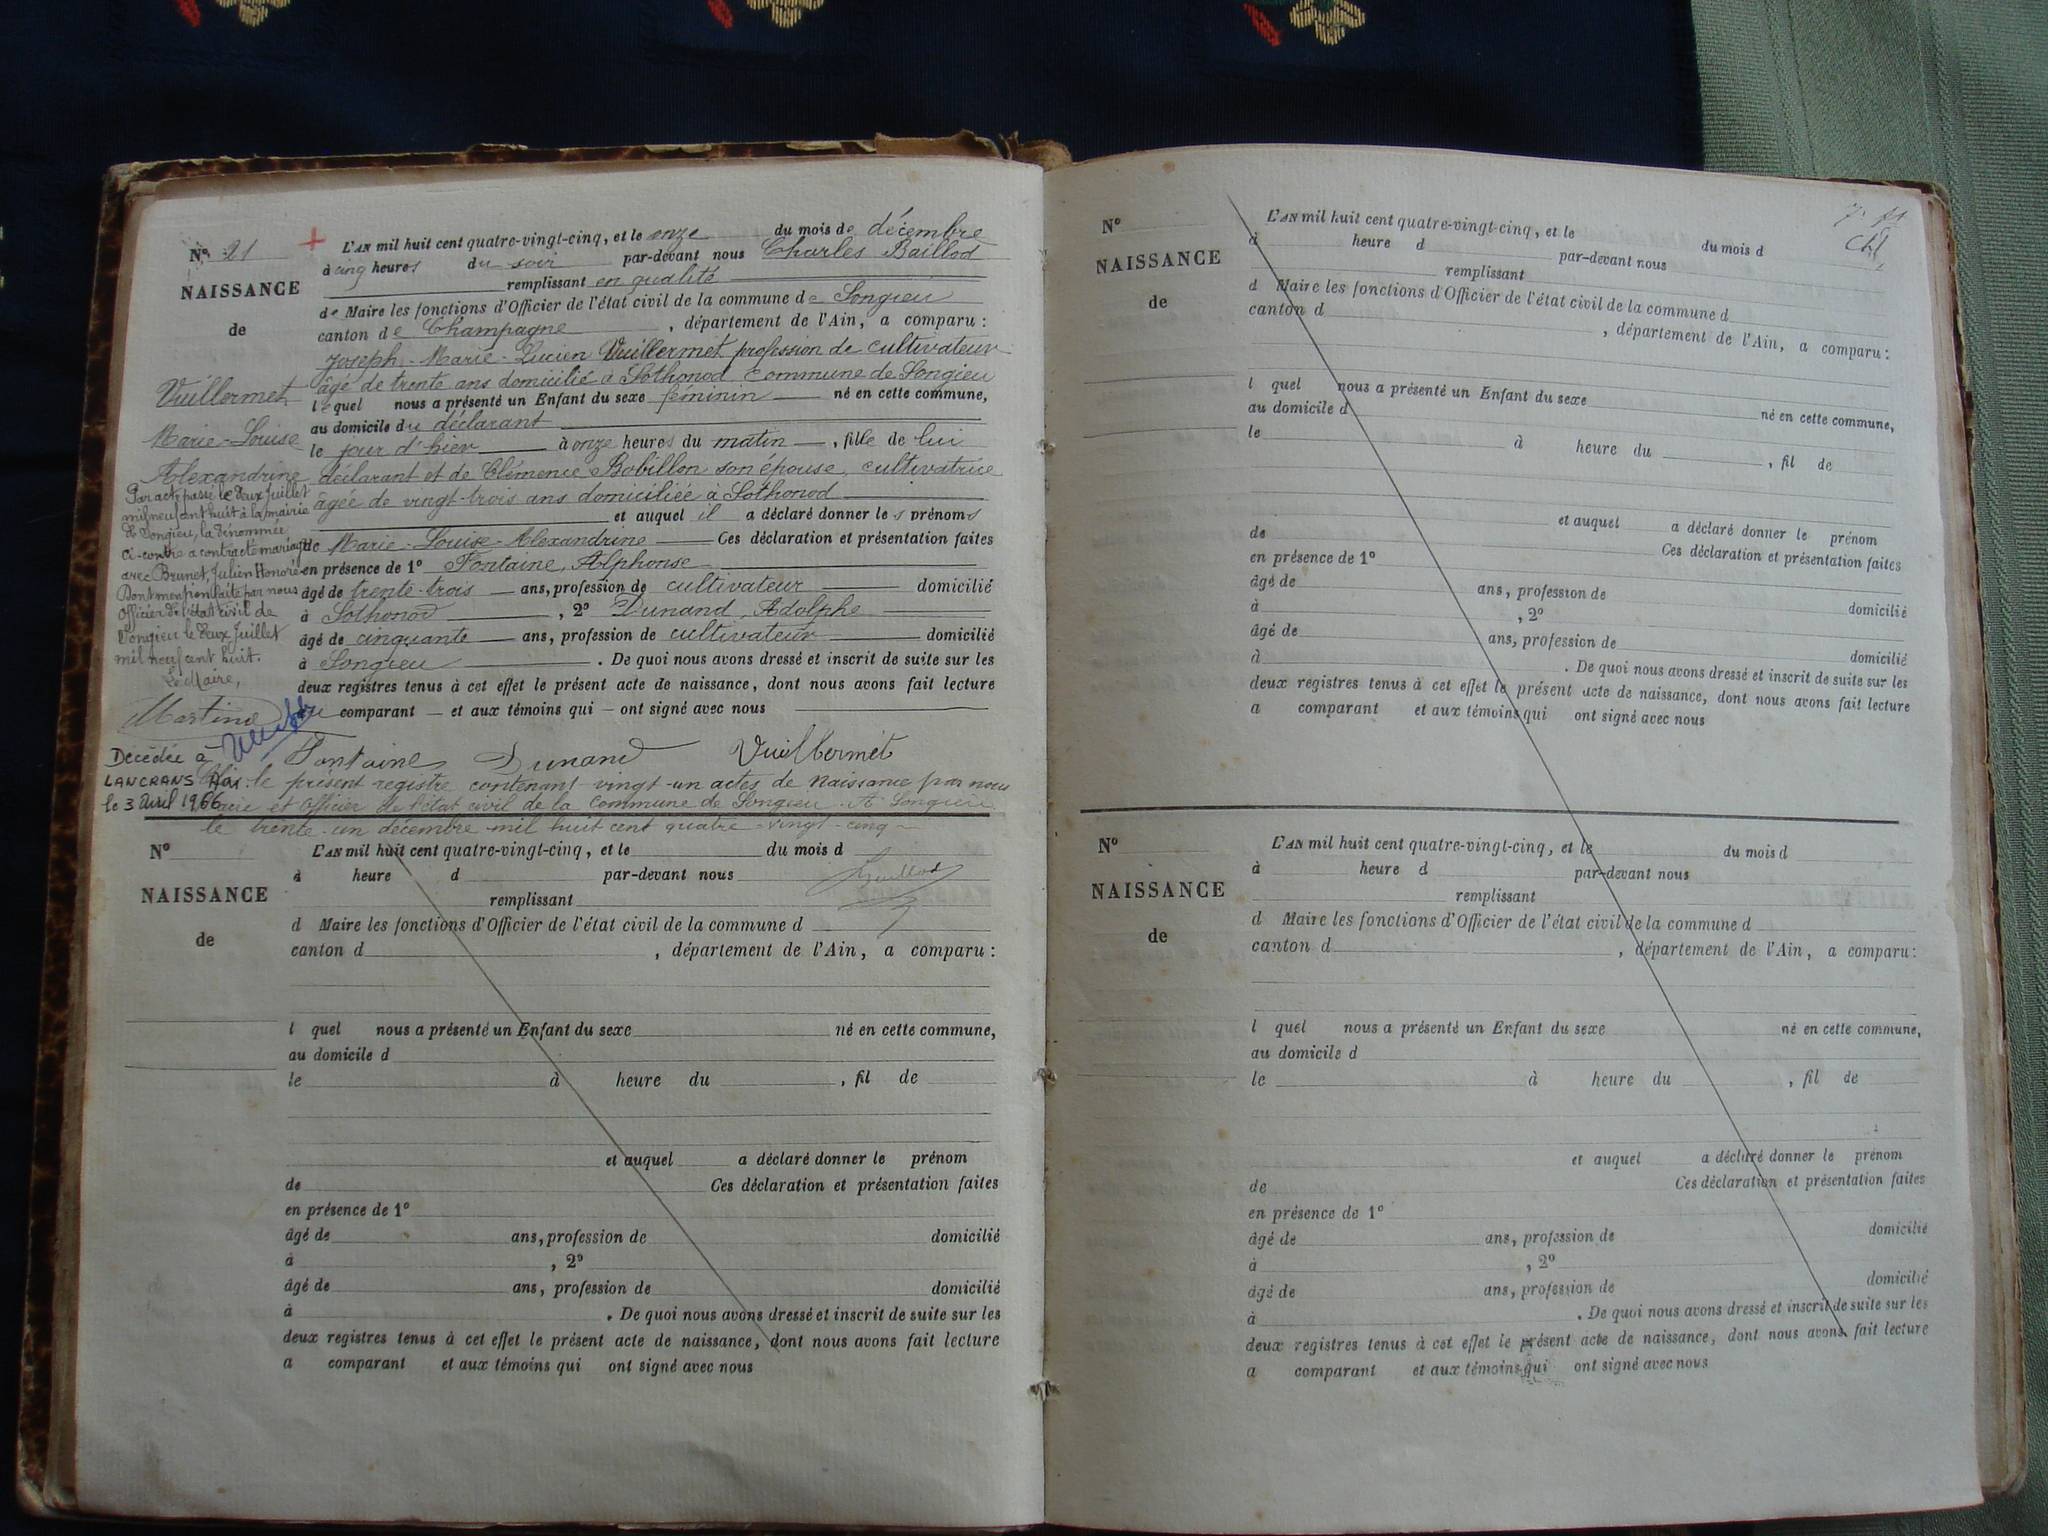 N° 21
NAISSANCE
de
Vuillermet
Marie-Louise
Alexandrine
Par acte passé le deux Juillet
mil neuf cent huit à la mairie
de Songieu, la dénommée
ci-contre a contracté mariage
avec Brunet, Julien Honoré
Dont mention faite par nous
Officier de l'état civil de
Songieu le deux Juillet
mil neuf cent huit.
Le Maire,
Martine
Décédée à
LANCRANS Ain
le 3 avril 1966
L'AN mil huit cent quatre-vingt-cinq, et le onze du mois de décembre
à cinq heures du soir par-devant nous Charles Baillod
remplissant en qualité
de Maire les fonctions d'Officier de l'état civil de la commune de Songieu
canton de Champagne, département de l'Ain, a comparu :
Joseph-Marie-Lucien Vuillermet profession de cultivateur
âgé de trente ans domicilié à Sothonod commune de Songieu
lequel nous a présenté un Enfant du sexe féminin né en cette commune,
au domicile du déclarant
le jour d'hier à onze heures du matin, fille de lui
déclarant et de Clémence Bobillon son épouse, cultivatrice
âgée de vingt-trois ans domiciliée à Sothonod
et auquel il a déclaré donner les prénoms
de Marie-Louise-Alexandrine Ces déclaration et présentation faites
en présence de 1° Fontaine, Alphonse
âgé de trente-trois ans, profession de cultivateur domicilié
à Sothonod, 2° Dunand, Adolphe
âgé de cinquante ans, profession de cultivateur domicilié
à Songieu. De quoi nous avons dressé et inscrit de suite sur les
deux registres tenus à cet effet le présent acte de naissance, dont nous avons fait lecture
au comparant et aux témoins qui ont signé avec nous
Fontaine Dunand Vuillermet
le présent registre contenant vingt-un actes de Naissance par nous
Maire et Officier de l'état civil de la Commune de Songieu. A Songieu
le trente-un décembre mil huit cent quatre-vingt-cinq
Baillod
N°
NAISSANCE
de
L'AN mil huit cent quatre-vingt-cinq, et le du mois d
à heure d par-devant nous
remplissant
d Maire les fonctions d'Officier de l'état civil de la commune d
canton d , département de l'Ain, a comparu :
l quel nous a présenté un Enfant du sexe né en cette commune,
au domicile d
le à heure du , fil de
et auquel a déclaré donner le prénom
de Ces déclaration et présentation faites
en présence de 1°
âgé de ans, profession de domicilié
à , 2°
âgé de ans, profession de domicilié
à . De quoi nous avons dressé et inscrit de suite sur les
deux registres tenus à cet effet le présent acte de naissance, dont nous avons fait lecture
a comparant et aux témoins qui ont signé avec nous
N°
NAISSANCE
de
L'AN mil huit cent quatre-vingt-cinq, et le du mois d
à heure d par-devant nous
remplissant
d Maire les fonctions d'Officier de l'état civil de la commune d
canton d , département de l'Ain, a comparu :
l quel nous a présenté un Enfant du sexe né en cette commune,
au domicile d
le à heure du , fil de
et auquel a déclaré donner le prénom
de Ces déclaration et présentation faites
en présence de 1°
âgé de ans, profession de
à , 2° domicilié
âgé de ans, profession de
à . domicilié
De quoi nous avons dressé et inscrit de suite sur les
deux registres tenus à cet effet le présent acte de naissance, dont nous avons fait lecture
a comparant et aux témoins qui ont signé avec nous
N°
NAISSANCE
de
L'AN mil huit cent quatre-vingt-cinq, et le du mois d
à heure d par-devant nous
remplissant
d Maire les fonctions d'Officier de l'état civil de la commune d
canton d , département de l'Ain, a comparu :
l quel nous a présenté un Enfant du sexe né en cette commune,
au domicile d
le à heure du , fil de
et auquel a déclaré donner le prénom
de Ces déclaration et présentation faites
en présence de 1°
âgé de ans, profession de domicilié
à , 2°
âgé de ans, profession de domicilié
à . De quoi nous avons dressé et inscrit de suite sur les
deux registres tenus à cet effet le présent acte de naissance, dont nous avons fait lecture
a comparant et aux témoins qui ont signé avec nous